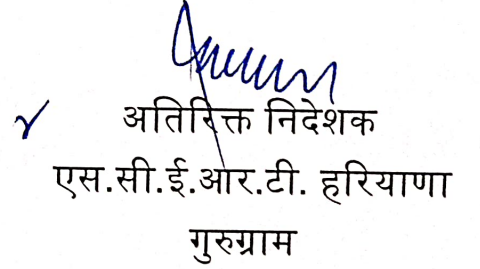 अतिरिक्त निदेशक
एस.सी.ई.आर.टी. हरियाणा
गुरुग्राम